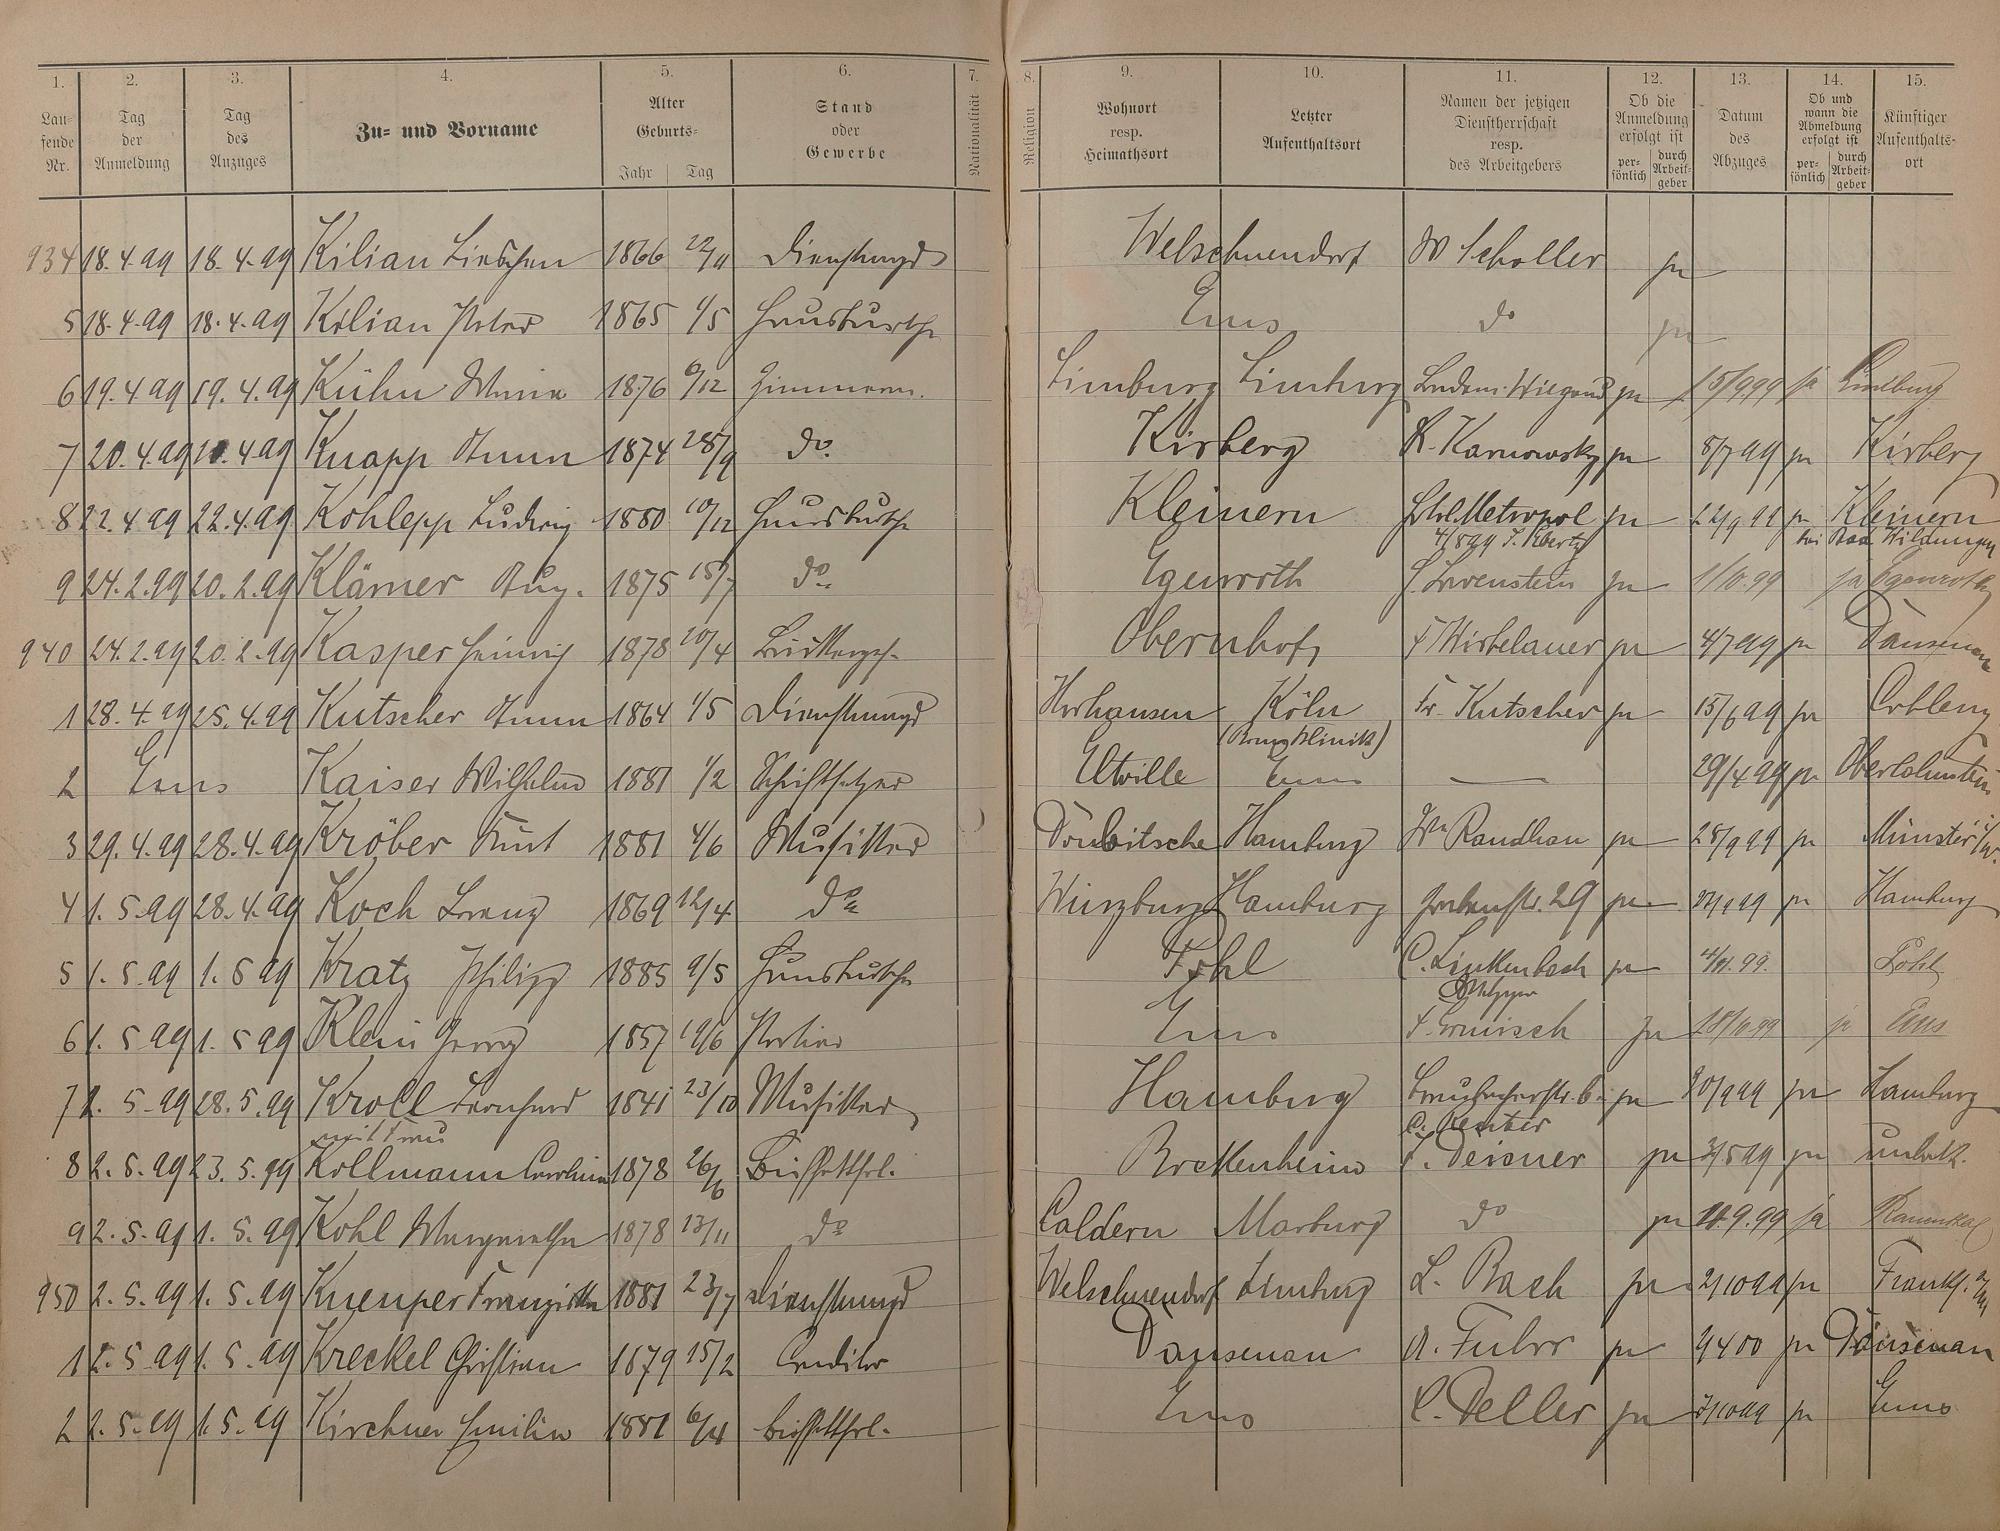 1. 2. 3. 4. 5. 6. 7. 8. 9. 10. 11. 12. 13. 14. 15.
Lau-
fende
Nr.
Tag
der
Anmeldung
Tag
des
Anzuges
Zu- und Vorname
Alter
Geburts-
Jahr Tag
Stand
oder
Gewerbe
Nationalität
Religion
Wohnort
resp.
Heimathsort
Letzter
Aufenthaltsort
Namen der jetzigen
Dienstherrschaft
resp.
des Arbeitgebers
Ob die
Anmeldung
erfolgt ist
per-
sönlich
durch
Arbeit-
geber
Datum
des
Abzuges
Ob und
wann die
Abmeldung
erfolgt ist
per-
sönlich
durch
Arbeit-
geber
Künftiger
Aufenthalts-
ort
934 18.4.99 18.4.99 Kilian Lieschen 1866 Dienstmagd Welschneudorf W Scholler ja
5 18.4.99 18.4.99 Kilian Peter 1865 1/5 Hausbursche Ems do ja
6 19.4.99 19.4.99 Kühn Minna 1876 6/12 Zimmerm. Limburg Limburg Wiegand ja 15/9 99 ja Limburg
7 20.4.99 4.99 Knapp Anna 1874 28/9 do. Kirberg K. Karnowsky ja 8/7 99 ja Kirberg
8 22.4.99 22.4.99 Kohlepp Ludwig 1880 10/12 Hausbursche Kleinern Hotel Metropol ja 22/9 99 ja Kleinern
bei Bad Wildungen
9 24.2.99 20.2.99 Klämer Aug. 1875 15/7 do. Egenroth Löwenstein ja 99 ja Egenroth
940 24.2.99 20.2.99 Kasper Heinrich 1878 20/4 Obernhof F Wirbelauer ja 4/7 99 ja Dausenau
1 28.4.99 25.4.99 Kutscher Anna 1864 1/5 Dienstmagd Horhausen Köln Fr. Kutscher ja 15/6 99 ja Coblenz
Klinik)
2 Ems Kaiser Wilhelm 1881 1/2 Schriftsetzer Eltville Ems — 29/4 99 ja Oberlahnstein
3 29.4.99 28.4.99 Kröber Kurt 1881 4/6 Musiker Hamburg Randhan ja 28/9 99 ja Münster i/W.
4 1.5.99 28.4.99 Koch Lorenz 1869 12/4 do Würzburg Hamburg 29 ja 99 ja Hamburg
5 1.5.99 1.5 99 Kratz Philipp 1885 9/5 Hausbursche Pohl C. Linkenbach ja 99. Pohl
6 1.5 99 1.5 99 Klein Georg 1857 19/6 Portier Ems ja 99 ja Ems
7 2.5.99 28.5.99 Kroll Bernhard 1841 23/10 Musiker Hamburg 6 ja 9 99 ja Hamburg
mit Frau
8 2.5.99 23.5.99 Kollmann Caroline 1878 26/6 Büffettfrl. Bockenheim Deisner ja 5 99 ja unbek.
9 2.5.99 1.5.99 Kohl Margarethe 1878 13/11 do Caldern Marburg do ja 9.99 ja
950 2.5.99 1.5.99 Knemper Franziska 1881 23/7 Dienstmagd Welschneudorf Limburg L. Bach ja 2/10 99 ja Frankf. a/M
1 2.5 99 1.5.99 Kreckel Christian 1879 15/2 Conditor Dausenau A. Fuhrr ja 9 4 00 ja Dausenau
2 2.5.99 1.5.99 Kirchner Emilie 1881 Büffettfrl. Ems C. Deller ja 10 99 ja Ems